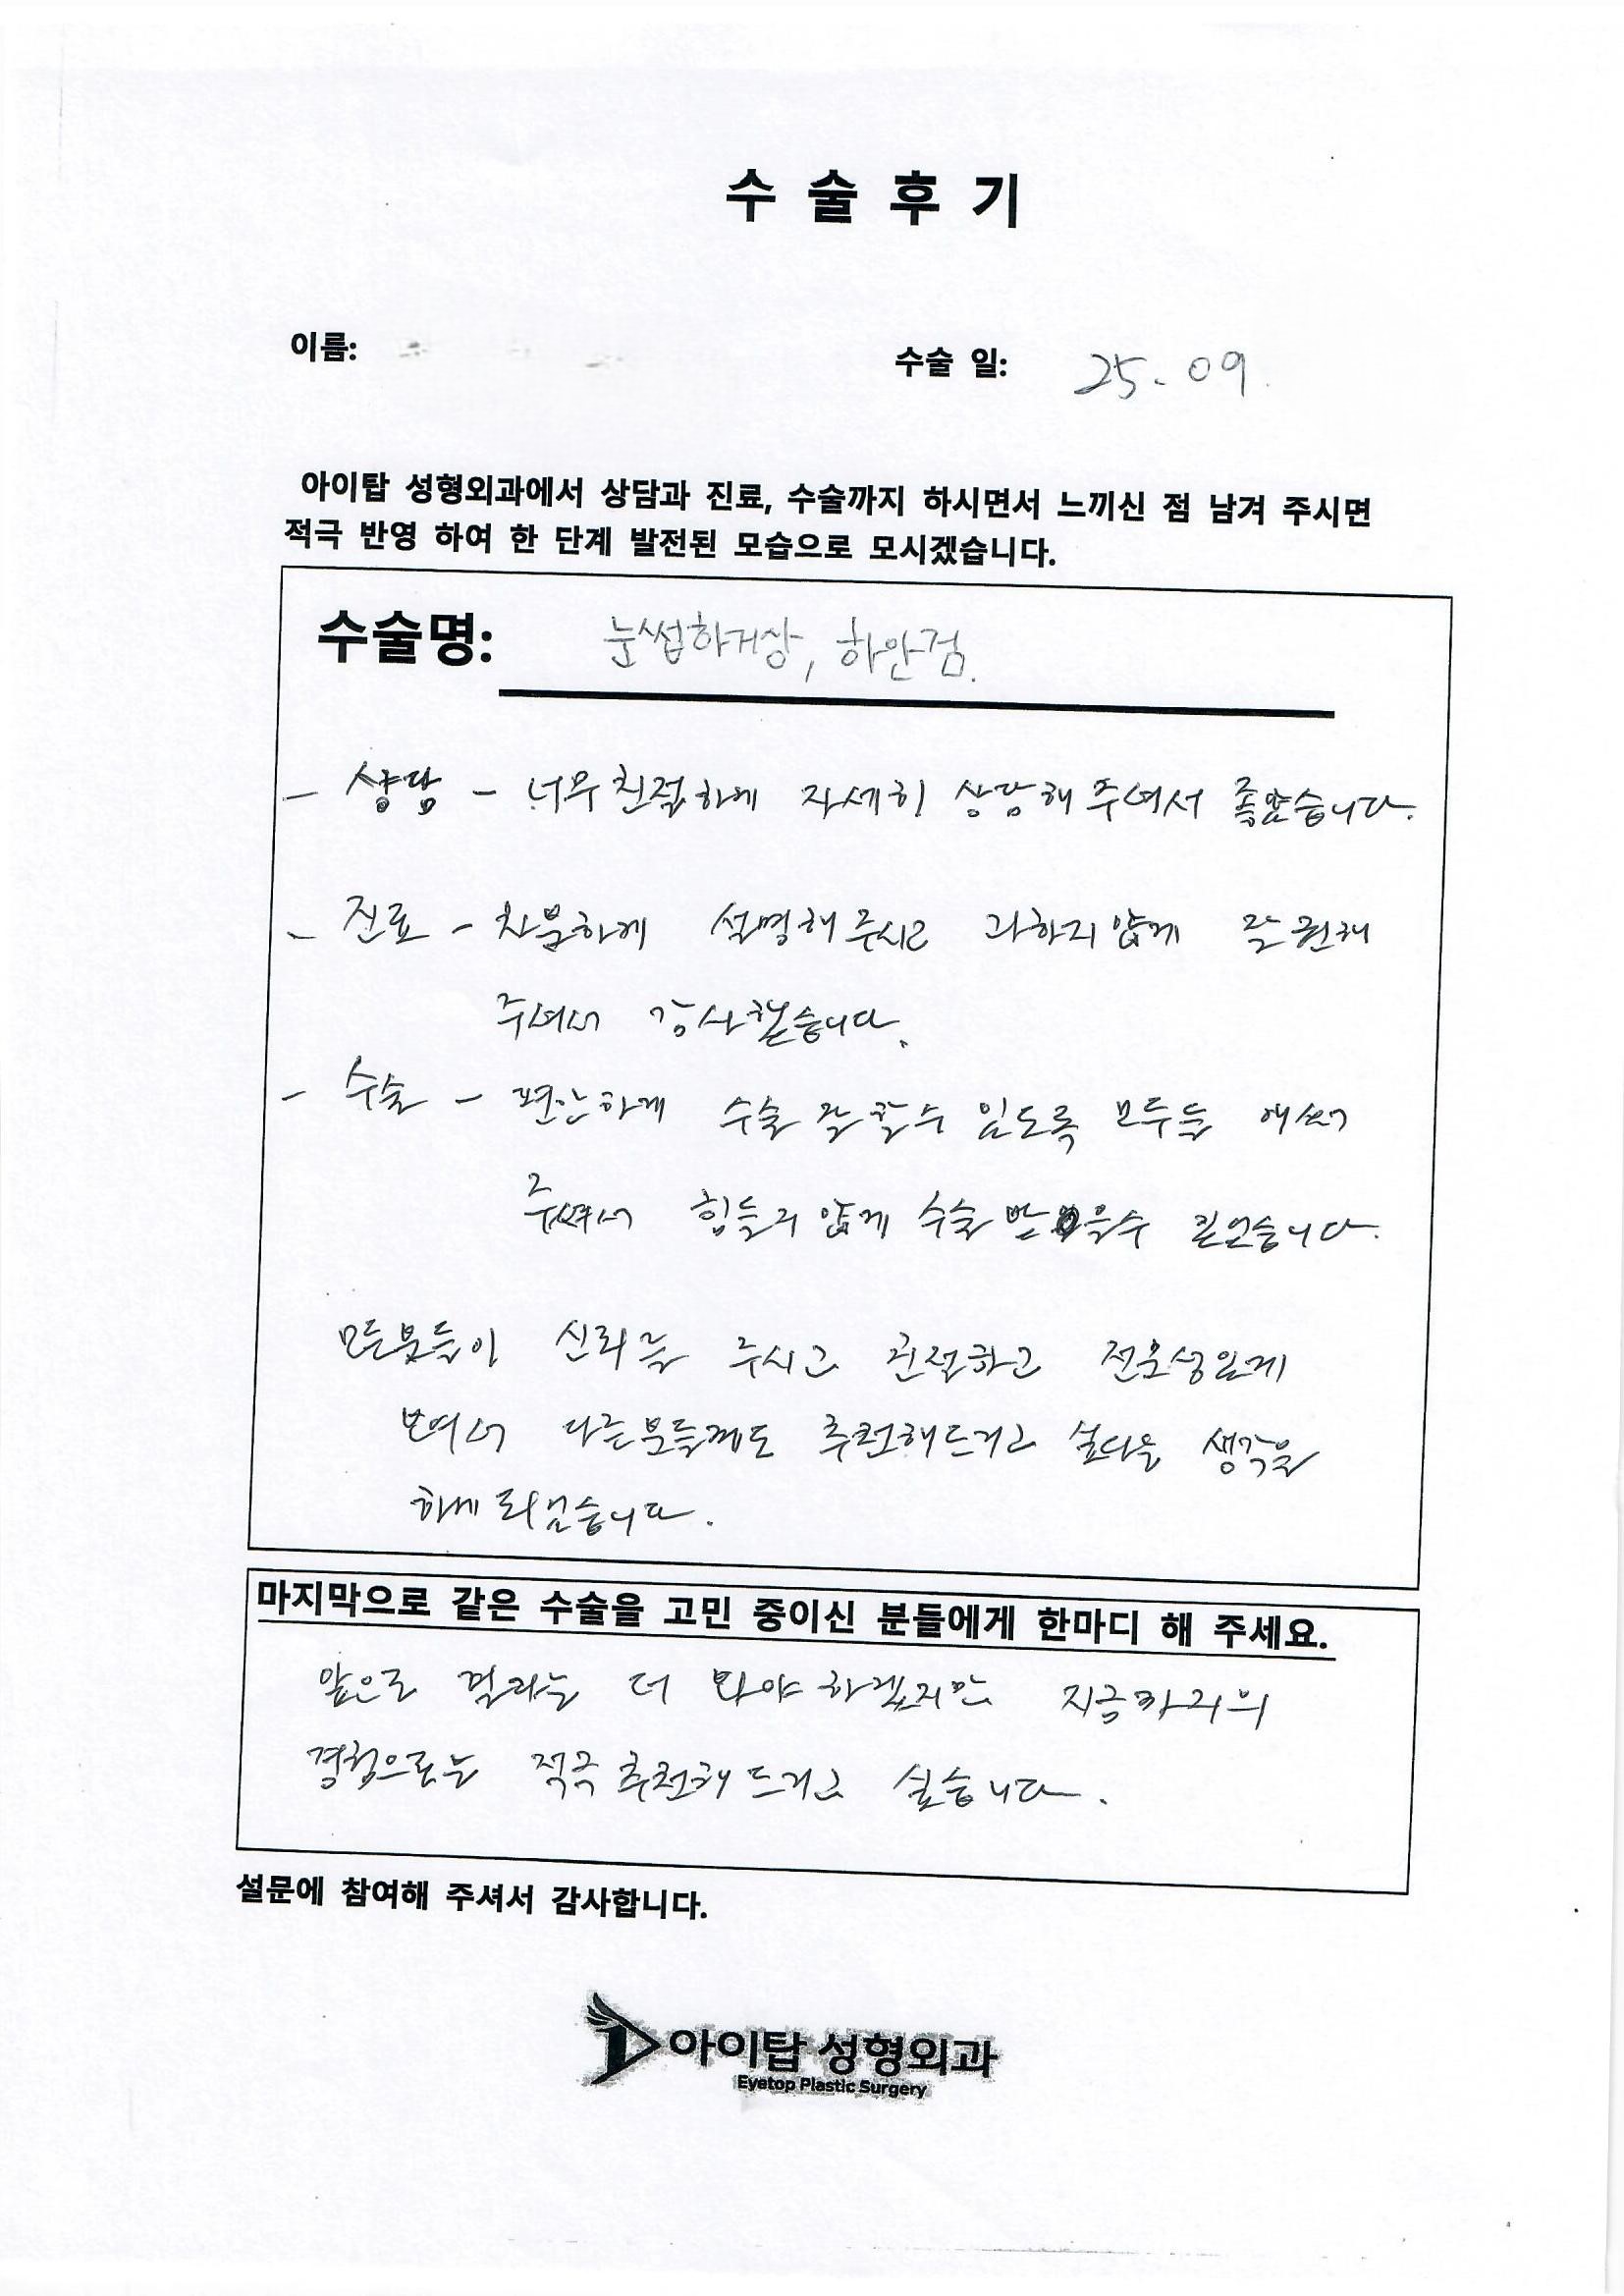 수술후기
이름:
수술 일: 25. 09.
아이탑 성형외과에서 상담과 진료, 수술까지 하시면서 느끼신 점 남겨 주시면
적극 반영 하여 한 단계 발전된 모습으로 모시겠습니다.
수술명: 눈썹하거상, 하안검.
- 상담 - 너무 친절하게 자세히 상담해 주셔서 좋았습니다.
- 진료 - 차분하게 설명해 주시고 과하지 않게 잘 권해
주셔서 감사했습니다.
- 수술 - 편안하게 수술 잘 할 수 있도록 모두들 애써
주셔서 힘들지 않게 수술 받을 수 있었습니다.
모든분들이 신뢰를 주시고 친절하고 전문성있게
보여서 다른분들께도 추천해드리고 싶다는 생각을
하게 되었습니다.
마지막으로 같은 수술을 고민 중이신 분들에게 한마디 해 주세요.
앞으로 결과는 더 봐야 하겠지만 지금까지의
경험으로는 적극 추천해 드리고 싶습니다.
설문에 참여해 주셔서 감사합니다.
아이탑 성형외과
Eyetop Plastic Surgery